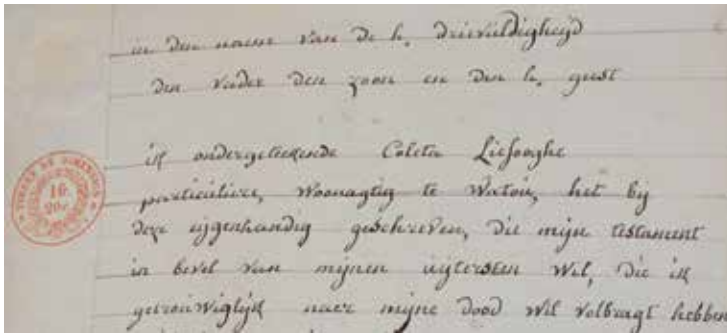 in den naem van de h. drievuldigheijd
den vader den zoon en den h. geest
ik ondergeteekende Coleta Liefooghe
particuliere, woonagtig te Watou, het bij
deze eijgenhandig geschreven, die mijn testament
in bevel van mijnen uijtersten wil, die ik
getrouwiglijk naer mijne dood wil volbragt hebben
16
20c